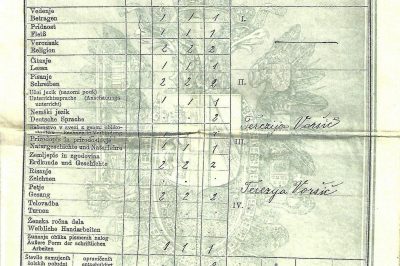 Vedenje
Betragen 1 1 1 I.
Pridnost
Fleiß 1 1 1
Veronauk
Religion 2 2 2
Čitanje
Lesen 1 1 1
Pisanje
Schreiben 2 2 2 II.
Učni jezik (nazorni pouk)
Unterrichtssprache (Anschauungs-
unterricht) 1 1 1
Nemški jezik
Deutsche Sprache 2
Terezija Voršič
III.
Naturgeschichte und Naturlehre 1 1 1
Zemljepis in zgodovina
Erdkunde und Geschichte 2 2 2
Risanje
Zeichnen 2
Petje
Gesang 2 2 2
Terezija Voršič
IV.
Telovadba
Turnen
Ženska ročna dela
Weibliche Handarbeiten
Zunanja oblika pismenih nalog
Äußere Form der schriftlichen
Arbeiten 1 1 1
Število zamujenih
šolskih poludni